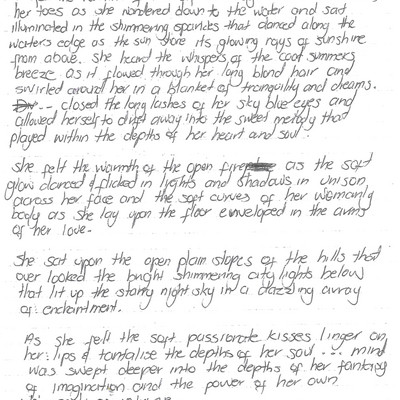 her toes as she wandered down to the water and sat
illuminated in the shimmering sparkles that danced along the
waters edge as the sun shone its glowing rays of sunshine
from above. she heard the whispers of the cool summers
breeze as it flowed through her long blond hair and
swirled around her in a blanket of tranquility and dreams.
closed the long lashes of her sky blue eyes and
allowed herself to drift away into the sweet melody that
played within the depths of her heart and soul.
She felt the warmth of the open fire as the soft
glow danced & flicked in lights and shadows in unison
across her face and the soft curves of her womanly
body as she lay upon the floor enveloped in the arms
of her love.
She sat upon the open plain slopes of the hills that
over looked the bright shimmering city lights below
that lit up the starry night sky in a dazzling array
of enchantment.
As she felt the soft passionate kisses linger on
her lips & tantalise the depths of her soul ... mind
was swept deeper into the depths of her fantasy
of imagination and the power of her own